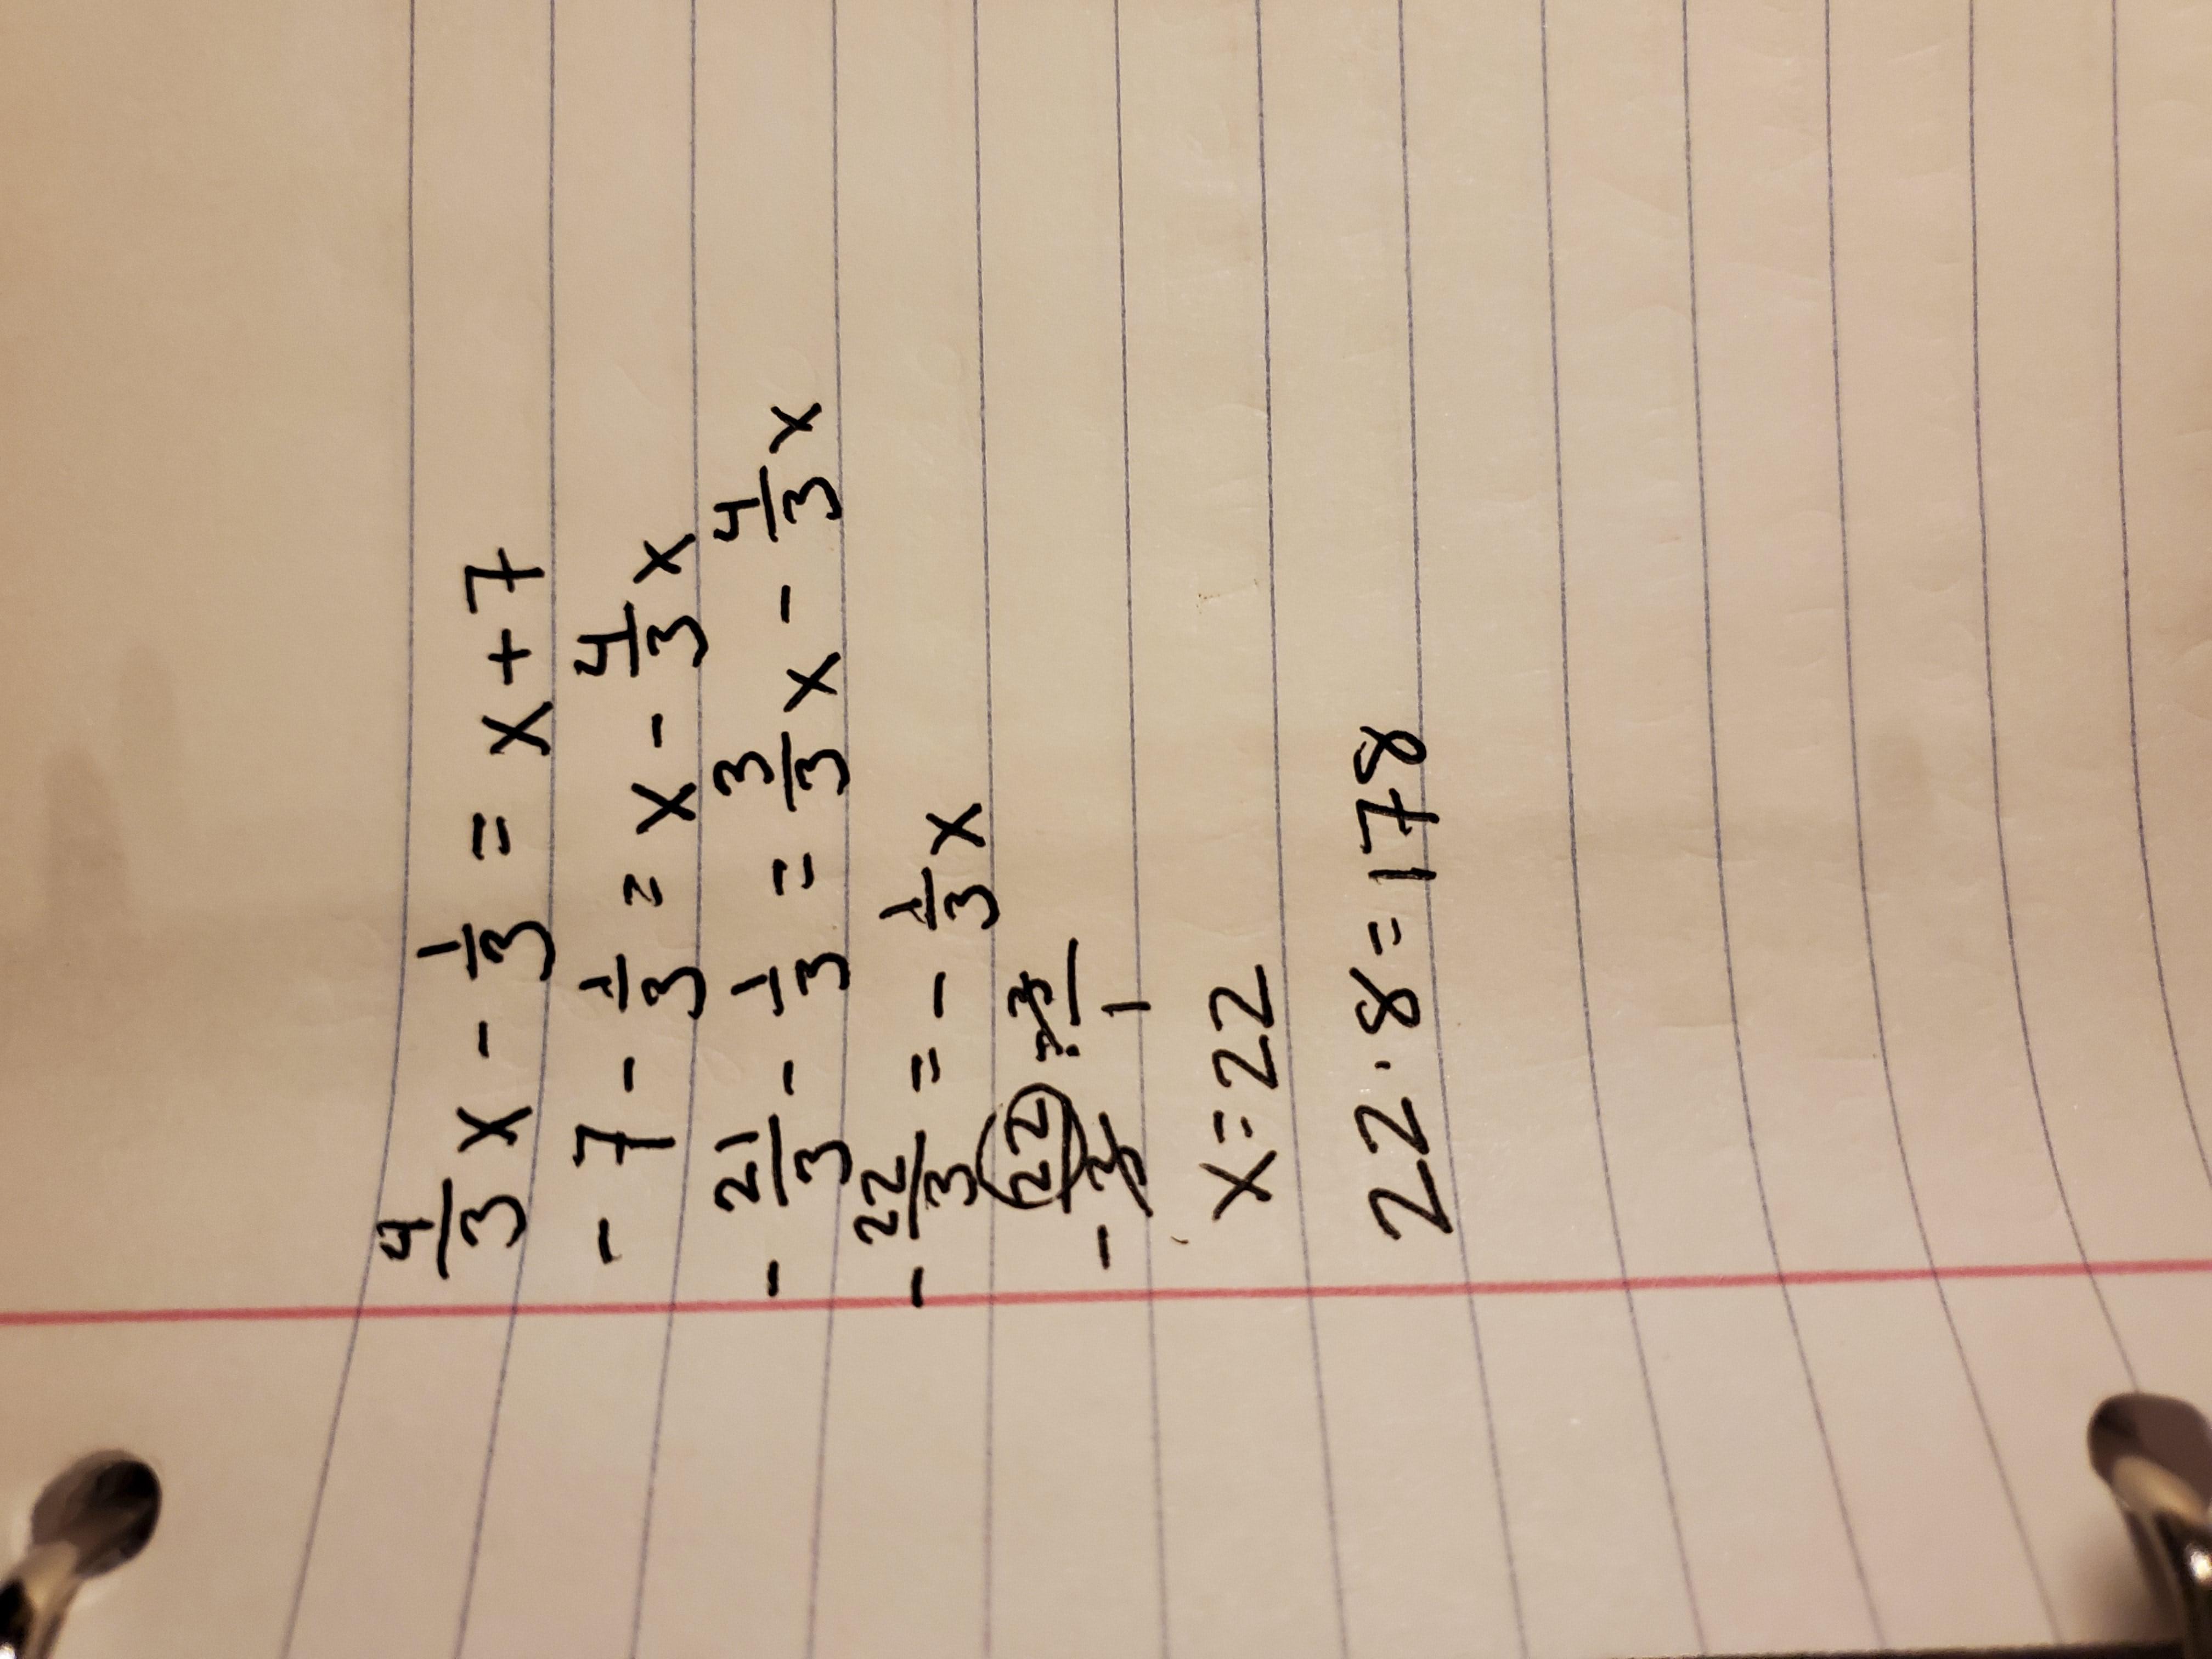 4/3 x - 1/3 = x + 7
- 7 - 1/3 = x - 4/3 x
- 21/3 - 1/3 = 3/3 x - 4/3 x
- 22/3 = - 1/3 x
- 22/3 · 3/1
x = 22
22 · 8 = 178